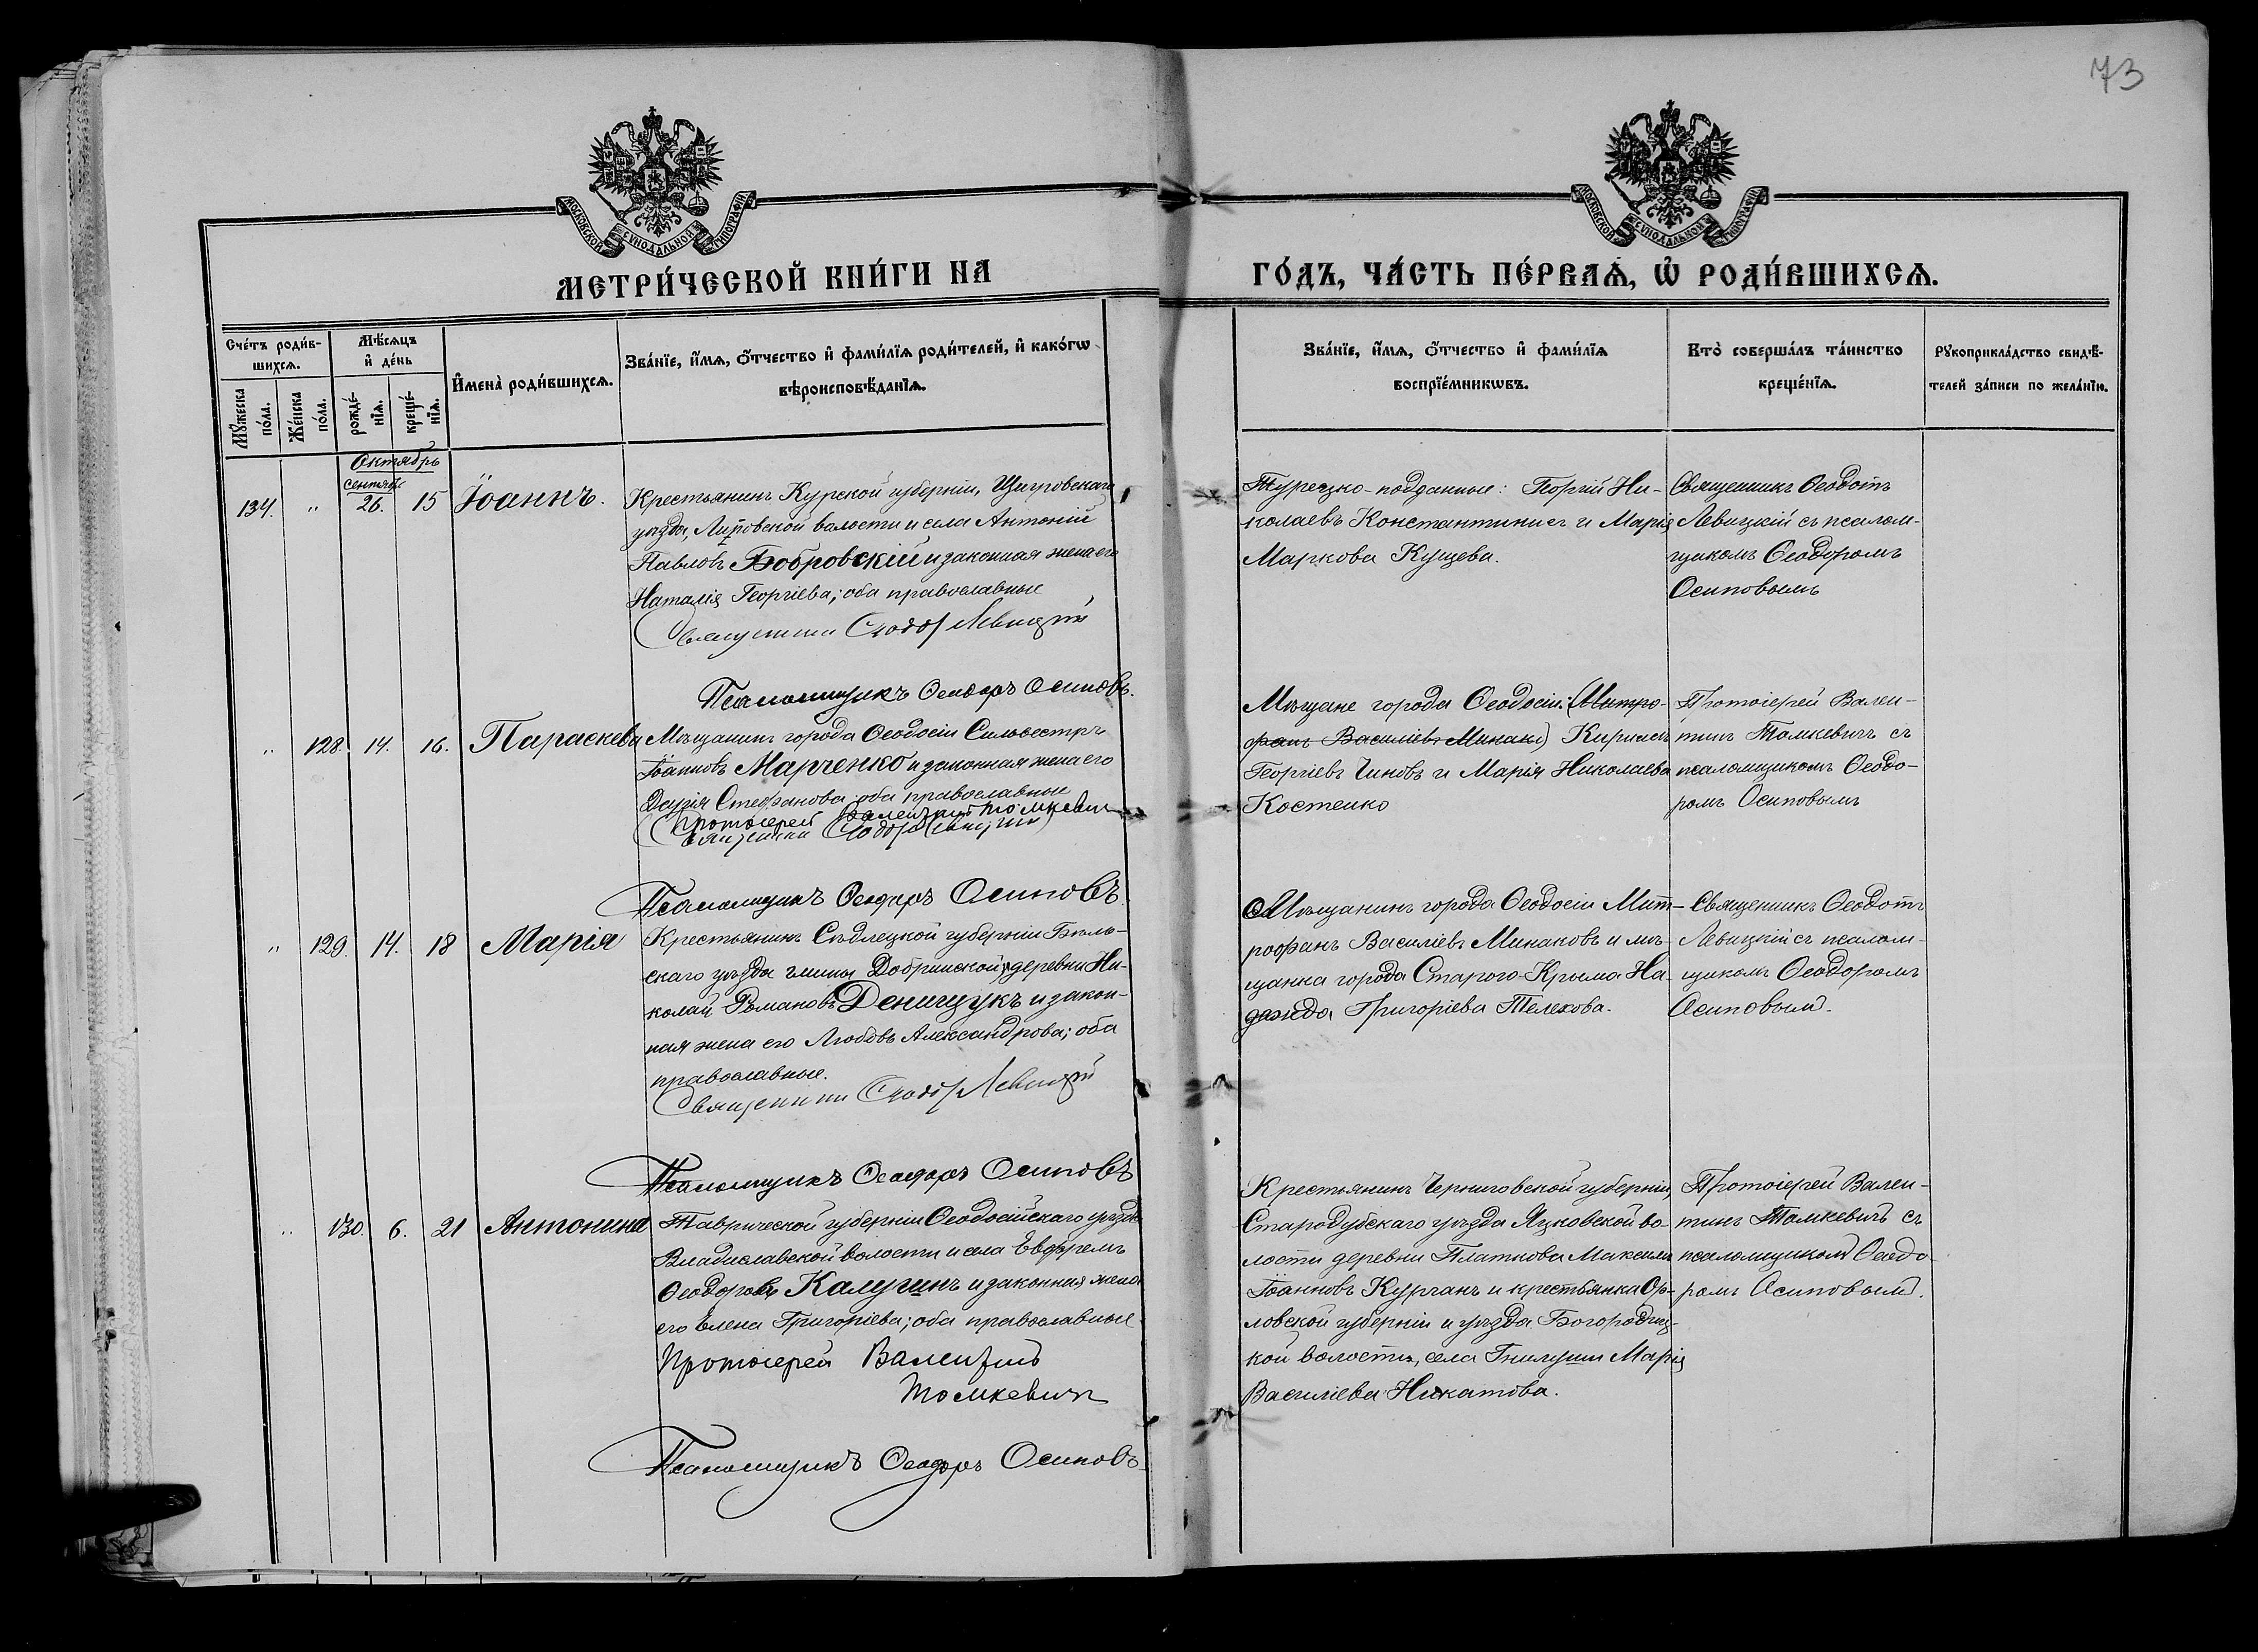 73
МОСКОВСКОЙ СѴНОДАЛЬНОЙ ТИПОГРАФІИ
МОСКОВСКОЙ СѴНОДАЛЬНОЙ ТИПОГРАФІИ
МЕТРИ́ЧЕСКОЙ КНИ́ГИ НА
ГО́ДЪ, ЧА́СТЬ ПЕ́РВАѦ, Ѡ҆ РОДИ́ВШИХСѦ.
Сче́тъ роди́в-
шихсѧ.
Му́жеска
по́ла.
Же́нска
по́ла.
Мѣ́сѧцъ
и҆ де́нь
рожде́-
нїѧ.
креще́-
нїѧ.
И҆мена̀ роди́вшихсѧ.
Зва́нїе, и҆́мѧ, ѻ҆́тчество и҆ фами́лїѧ роди́телей, и҆ како́гѡ
вѣроисповѣ́данїѧ.
Зва́нїе, и҆́мѧ, ѻ҆́тчество и҆ фами́лїѧ
воспрїе́мникѡвъ.
Кто̀ соверша́лъ та́инство
креще́нїѧ.
Рукоприкла́дство свидѣ́-
телей за́писи по жела́нїю.
Октябрь
сентября
134. " 26. 15 Іоаннъ.
Крестьянинъ Курской губерніи, Щигровскаго
уѣзда, Липовской волости и села Антоній
Павловъ Бобровскій и законная жена его
Наталія Георгіева; оба православные
Священникъ Ѳеодотъ Левицкій
Псаломщикъ Ѳеодоръ Осиповъ.
Турецко-подданные: Георгій Ни-
колаевъ Константинисъ и Марія
Маркова Кущева.
Священникъ Ѳеодотъ
Левицкій съ псалом-
щикомъ Ѳеодоромъ
Осиповымъ
" 128. 14. 16. Параскева
Мѣщанинъ города Ѳеодосіи Сильвестръ
Іоанновъ Марченко и законная жена его
Дарія Стефанова; оба православные
Протоіерей Валентинъ Томкевичъ
Священникъ Ѳеодотъ Левицкій
Псаломщикъ Ѳеодоръ Осиповъ.
Мѣщане города Ѳеодосіи: (Митро-
фанъ Василіевъ Минаки) Кириллъ
Георгіевъ Чиновъ и Марія Николаева
Костенко
Протоіерей Вален-
тинъ Томкевичъ съ
псаломщикомъ Ѳеодо-
ромъ Осиповымъ
" 129. 14. 18 Марія
Крестьянинъ Сѣдлецкой губерніи Бѣль-
скаго уѣзда гмины Добринской, деревни Ни-
колай Романовъ Денищукъ и закон-
ная жена его Любовь Александрова; оба
православные.
Священникъ Ѳеодотъ Левицкій
Псаломщикъ Ѳеодоръ Осиповъ
Мѣщанинъ города Ѳеодосіи Мит-
рофанъ Василіевъ Минаковъ и мѣ-
щанка города Старого-Крыма На-
дежда Григоріева Телехова.
Священникъ Ѳеодотъ
Левицкій съ псалом-
щикомъ Ѳеодоромъ
Осиповымъ.
" 130. 6. 21 Антонина
Таврической губерніи Ѳеодосійскаго уѣзда
Владиславской волости и села Евфремъ
Ѳеодоровъ Калугинъ и законная жена
его Елена Григоріева; оба православные
Протоіерей Валентинъ
Томкевичъ
Псаломщикъ Ѳеодоръ Осиповъ
Крестьянинъ Черниговской губерніи,
Стародубскаго уѣзда Яцковской во-
лости деревни Платкова Максимъ
Іоанновъ Курганъ и крестьянка Ор-
ловской губерніи и уѣзда Богородиц-
кой волости, села Гнилуши Марія
Василіева Никатова.
Протоіерей Вален-
тинъ Томкевичъ съ
псаломщикомъ Ѳеодо
ромъ Осиповымъ.